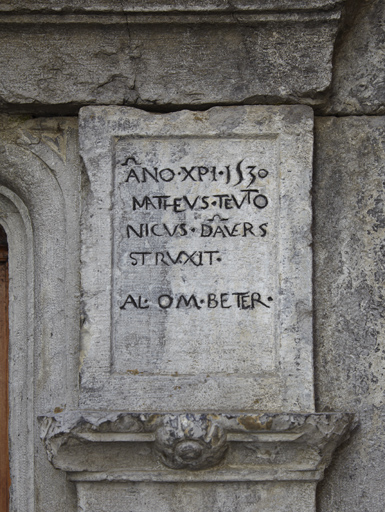 AÑO·XPI·1530
MATHEVS·TEVTO
NICVS·DAVERS
STRVXIT·
AL·OM·BETER·